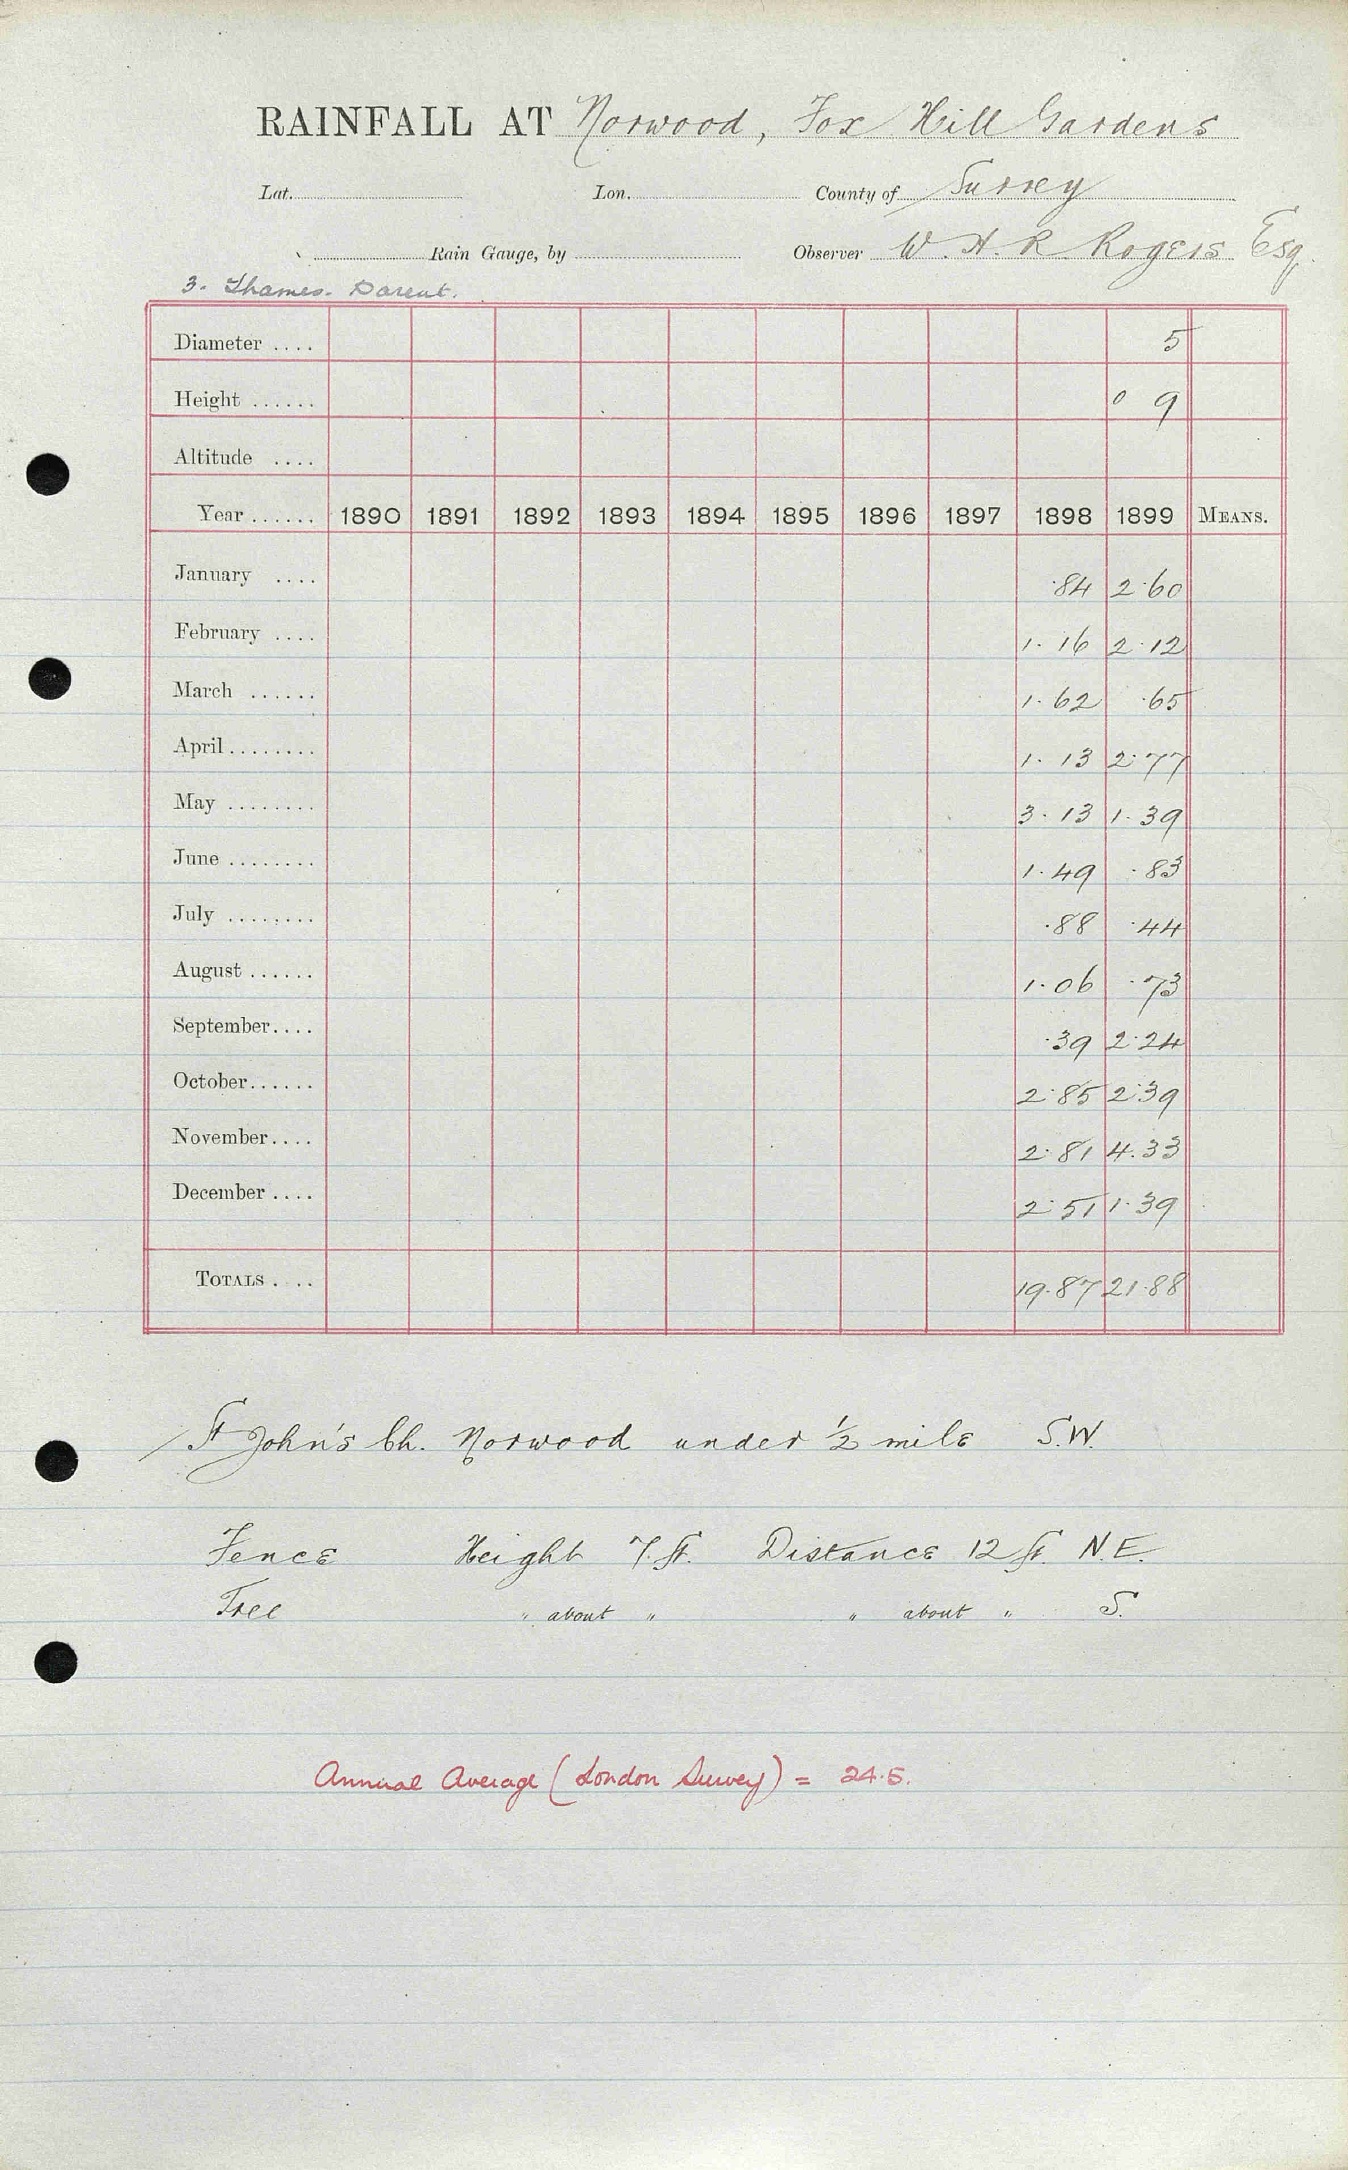 RAINFALL AT Norwood, Fox Hill Gardens
Lat. Lon. County of Surrey
Rain Gauge, by Observer W. H. R. Rogers Esq.
3. Thames. Darent.
Diameter .... 5
Height ...... 0 9
Altitude ....
Year ...... 1890 1891 1892 1893 1894 1895 1896 1897 1898 1899 MEANS.
January .... .84 2.60
February .... 1.16 2.12
March ...... 1.62 .65
April ........ 1.13 2.77
May ........ 3.13 1.39
June ........ 1.49 .83
July ........ .88 .44
August ...... 1.06 .73
September .... .39 2.24
October ...... 2.85 2.39
November .... 2.81 4.33
December .... 2.51 1.39
TOTALS .... 19.87 21.88
St John's Ch. Norwood under 1/2 mile S.W.
Fence Height 7 ft. Distance 12 ft. N.E.
Tree " about " " about " S.
Annual Average (London Survey) = 24.5.